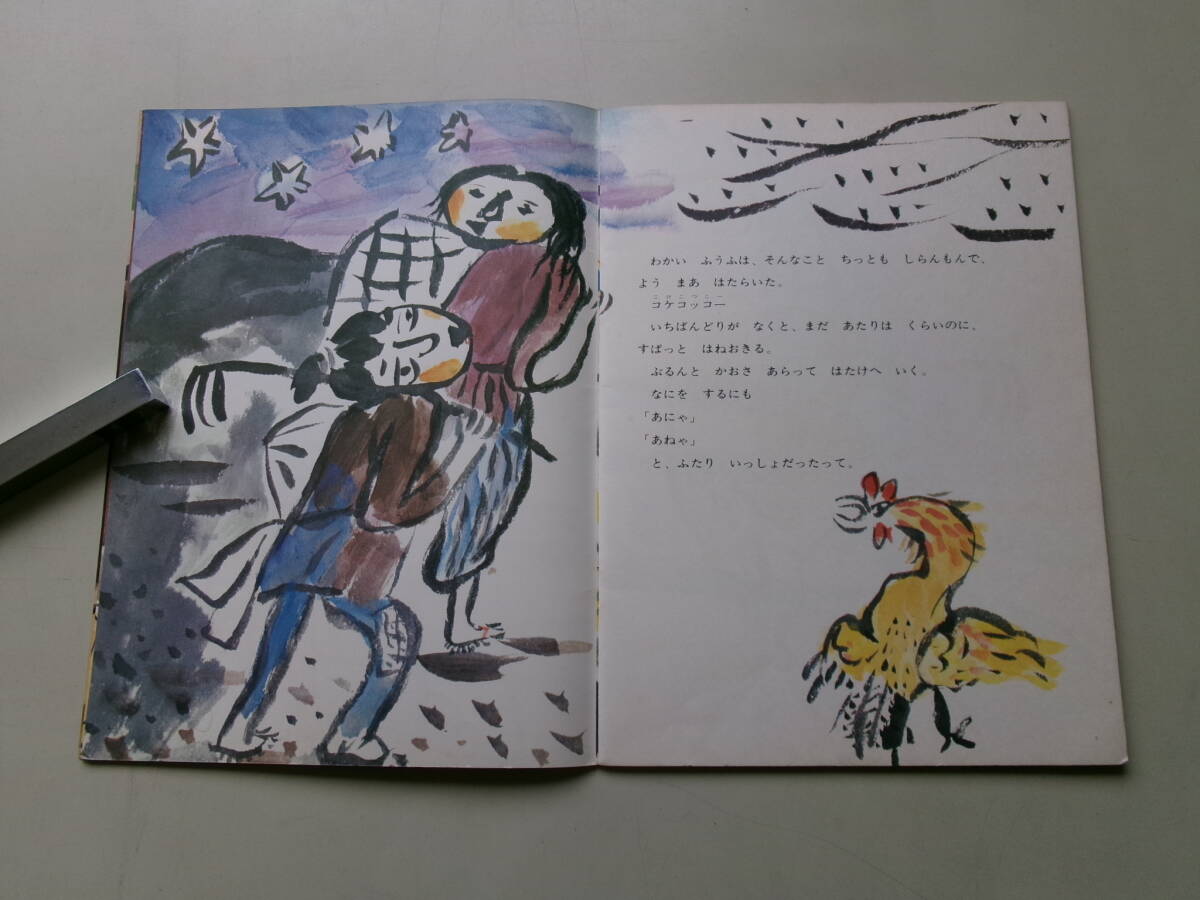 わかい ふうふは、そんなこと ちっとも しらんもんで、
よう まあ はたらいた。
コケコッコー
いちばんどりが なくと、まだ あたりは くらいのに、
すぱっと はねおきる。
ぶるんと かおさ あらって はたけへ いく。
なにを するにも
「あにゃ」
「あねゃ」
と、ふたり いっしょだったって。